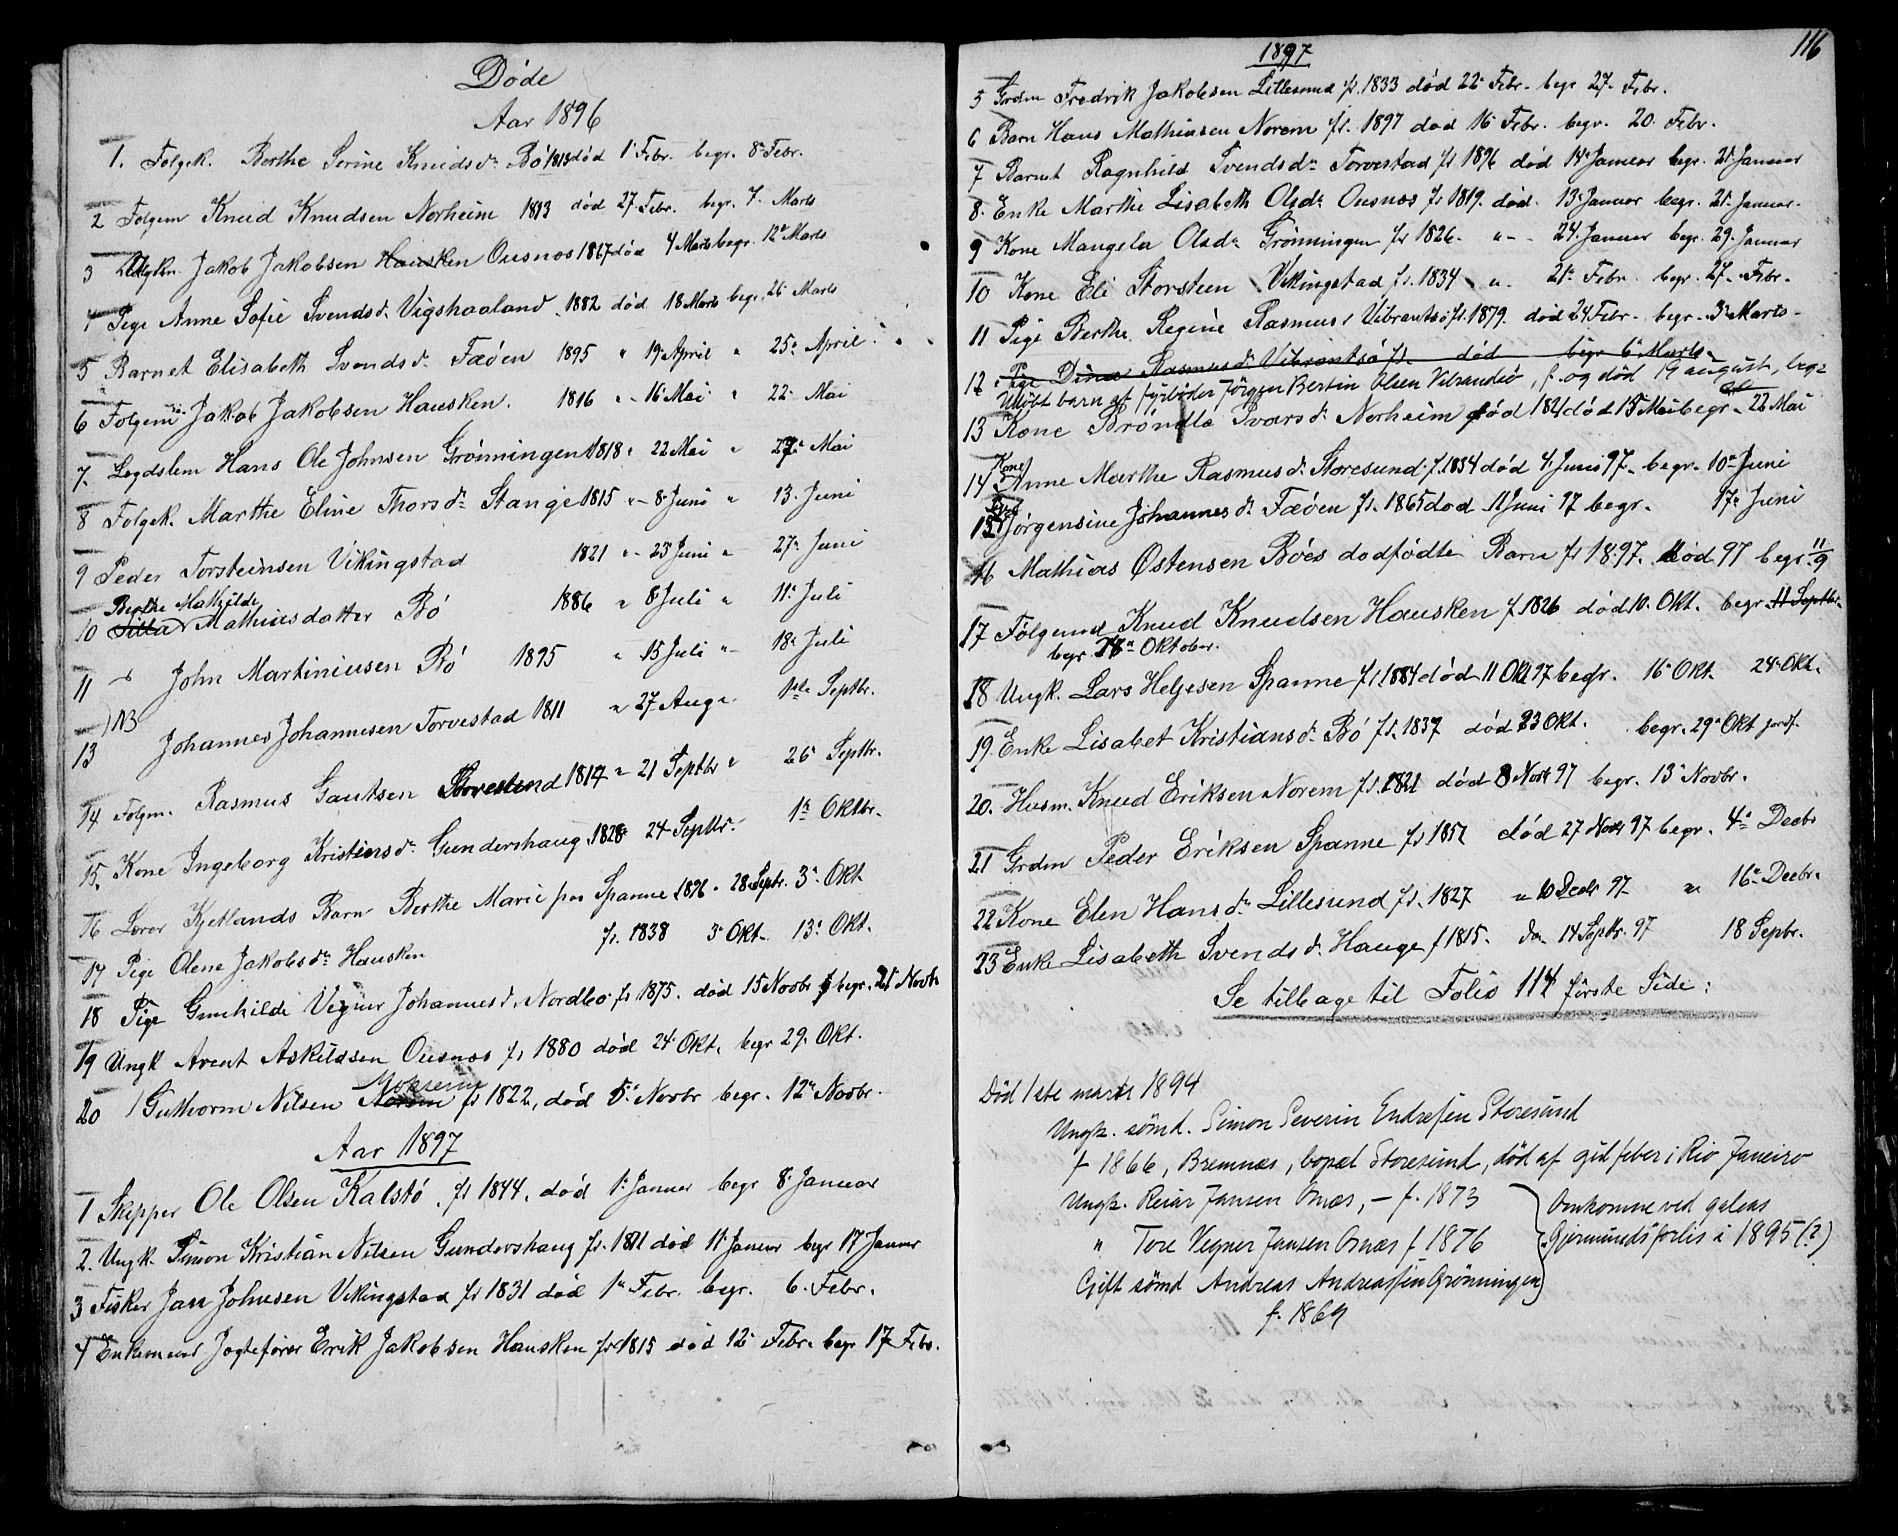 Døde
Aar 1896
1. Folgek. Berthe Serine Knudsdr Bö 1813 död 1. Febr. begr. 8de Febr.
2 Folgem Knud Knudsen Norheim 1813 död 27. Febr. begr. 7. Marts
3 Jakob Jakobsen Hausken Ousnes 1867 död 4 Marts begr. 12te Marts
4 Pige Anne Sofie Svendsdr. Vigshaaland 1882 död 18 Marts begr. 26 Marts
5 Barnet Elisabeth Svendsdr. Fæöen 1895 " 19 April " 25de April
6 Folgem Jakob Jakobsen Hausken. 1816 " 16 Mai " 22 Mai
7. Legdslem Hans Ole Johnsen Grönningen 1818 " 22 Mai " 27de Mai
8 Folgek. Marthe Eline Thorsdr Stange 1815 " 8 Juni " 13. Juni
9 Peder Torsteinsen Vikingstad 1821 " 23 Juni " 27de Juni
Berthe Mathilde
10 Silla Mathiasdatter Bö 1886 " 8 Juli " 11te Juli
11 John Martiniusen Bö 1895 " 15 Juli " 18de Juli
NB
13 Johannes Johannesen Torvestad 1811 " 27 Aug. 1ste Septbr.
14 Folgm. Rasmus Gautsen Storesund 1817 " 21 Septbr " 26 Septbr.
15. Kone Ingeborg Kristensdr. Gundershaug 1828 24 Septbr. 1te Oktbr.
16 Lærer Kjetlands Barn Berthe Marie paa Spanne 1896 " 28 Septr. 3. Okt.
17 Pige Olene Jakobsdr Hausken fs. 1838 3. Okt. 13. Okt.
18 Pige Gunhilde Vegner Johannesd. Nordbö fs 1875. död 15 Novbr begr. 21 Novbr
19 Ungk Arent Askildsen Ousnes fs 1880 död 24. Okt. begr 29. Okt.
20 Guthorm Nilsen Norem fs 1822, död 5. Novbr begr. 12te Novbr.
Aar 1897
1 Skipper Ole Olsen Kalstö. fs 1844. död 1. Januar begr 8. Januar
2. Ungk. Simon Kristian Nilsen Gundershaug fs. 1871 död 11. Januar begr 17 Januar
3 Fisker Jan Johnesen Vikingstad fs 1831 död 1te Febr. begr. 6. Febr.
4 Enkemand Jagtefører Erik Jakobsen Hausken fs 1815 död 12 Febr. begr 17 Febr.
116
1897
5 Grdm Fredrik Jakobsen Lillesund fs. 1833 död 22 Febr. begr 27 Febr.
6 Barn Hans Mathiasen Norem fs. 1897 död 16 Febr. begr. 20. Febr.
7 Barnet Ragnhild Svendsdr Torvestad fs 1896 död 14 Januar begr. 21. Januar
8. Enke Marthe Lisabeth Olsdr Ousnes fs 1819. död. 13. Januar begr. 21. Januar.
9 Kone Mangela Olsdr Grönningen fs 1826. " 24. Januar begr. 29. Januar
10 Kone Eli Storsteen Vikingstad fs. 1834 " 21. Febr. begr. 27. Febr.
11 Pige Berthe Regine Rasmusd Vibrantsö fs. 1879. död 24 Febr. begr. 3. Marts
12. Pige Dina Rasmusdr Vibrantsö fs. död begr 6. Marts
Udöbt barn af fyrböder Jörgen Bertin Olsen Vibrandsö, f. og död 19 august, beg.
13 Kone Bröndla Ivarsdr. Norheim född 1821 död 15 Mai begr. 22 Mai
14 Kone Anne Marthe Rasmusdr. Storesund f. 1834 död 4. Juni 97. begr. 10de Juni
15 Jörgensine Johannesdr. Fæöen fs. 1865 död 11 Juni 97 begr. 17de Juni
16 Mathias Østensen Böes dödfödte Barn fs 1897. död 97 begr. 11/9
17 Fölgemd Knud Knudsen Hausken f. 1826 död 10. Okt. begr. 11 Septbr.
begr 18de Oktober.
18 Ungk. Lars Heljesen Spanne fs. 1884 död 11 Okt 97 begr. 16 Okt. 24. Okt.
19. Enke Lisabet Kristiansdr. Bö fs. 1837 död 23 Okt. begr. 29de Okt jordf.
20. Husm. Knud Eriksen Norem fs. 1821 död 8 Novb 97 begr. 13. Novbr.
21 Grdm Peder Eriksen Spanne fs. 1857 död 27 Novb 97. begr. 4de Decbr
22 Kone Elen Hansdr Lillesund fs. 1827 " 10 Decbr 97 " 16de Decbr.
23 Enke Lisabeth Svendsdr. Hauge f 1815. do. 14 Septbr. 97 18 Sepbr.
Se tilbage til Folio 114 förste Side:
Død 1ste marts 1894
Ungk. sömd. Simon Severin Endresen Storesund
f 1866, Bremnæs, bopæl Storesund, död af gul feber i Rio Janeiro
Ungk. Reiar Jansen Osnæs, — f. 1873
" Tore Vegner Jansen Osnæs f. 1876
Omkomne ved galeas
Gjermunds forlis i 1895 (?)
Gift sömd Andreas Andreassen Grönningen
f. 1869